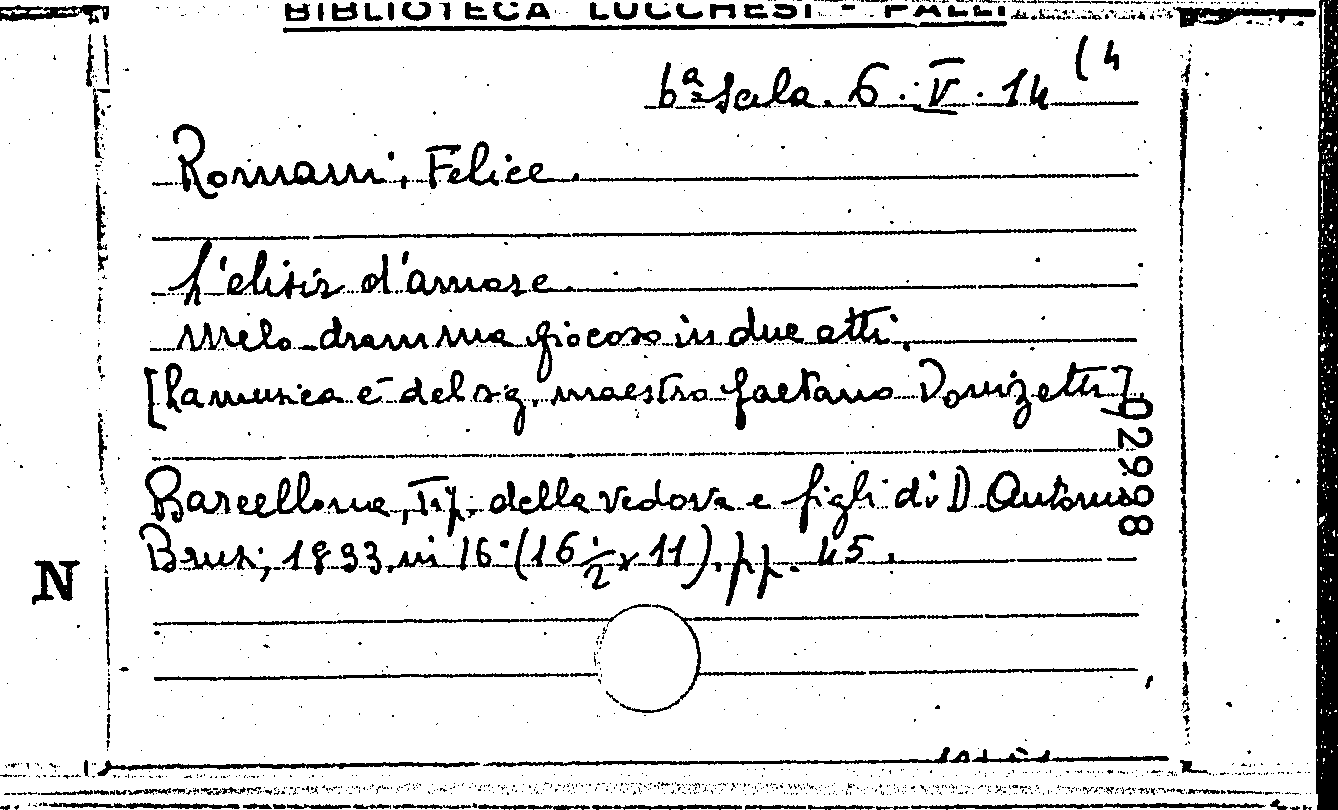 BIBLIOTECA LUCCHESI - PALLI
6ª Sala. 6. V. 14 (4
Romani, Felice.
L'elisir d'amore
Melo-dramma giocoso in due atti.
[La musica è del sig. maestro Gaetano Donizetti]
Barcellona, Tip. della vedova e figli di D. Antonio
Brusi, 1833. in 16° (16 1/2 x 11). pp. 45.
02998
N